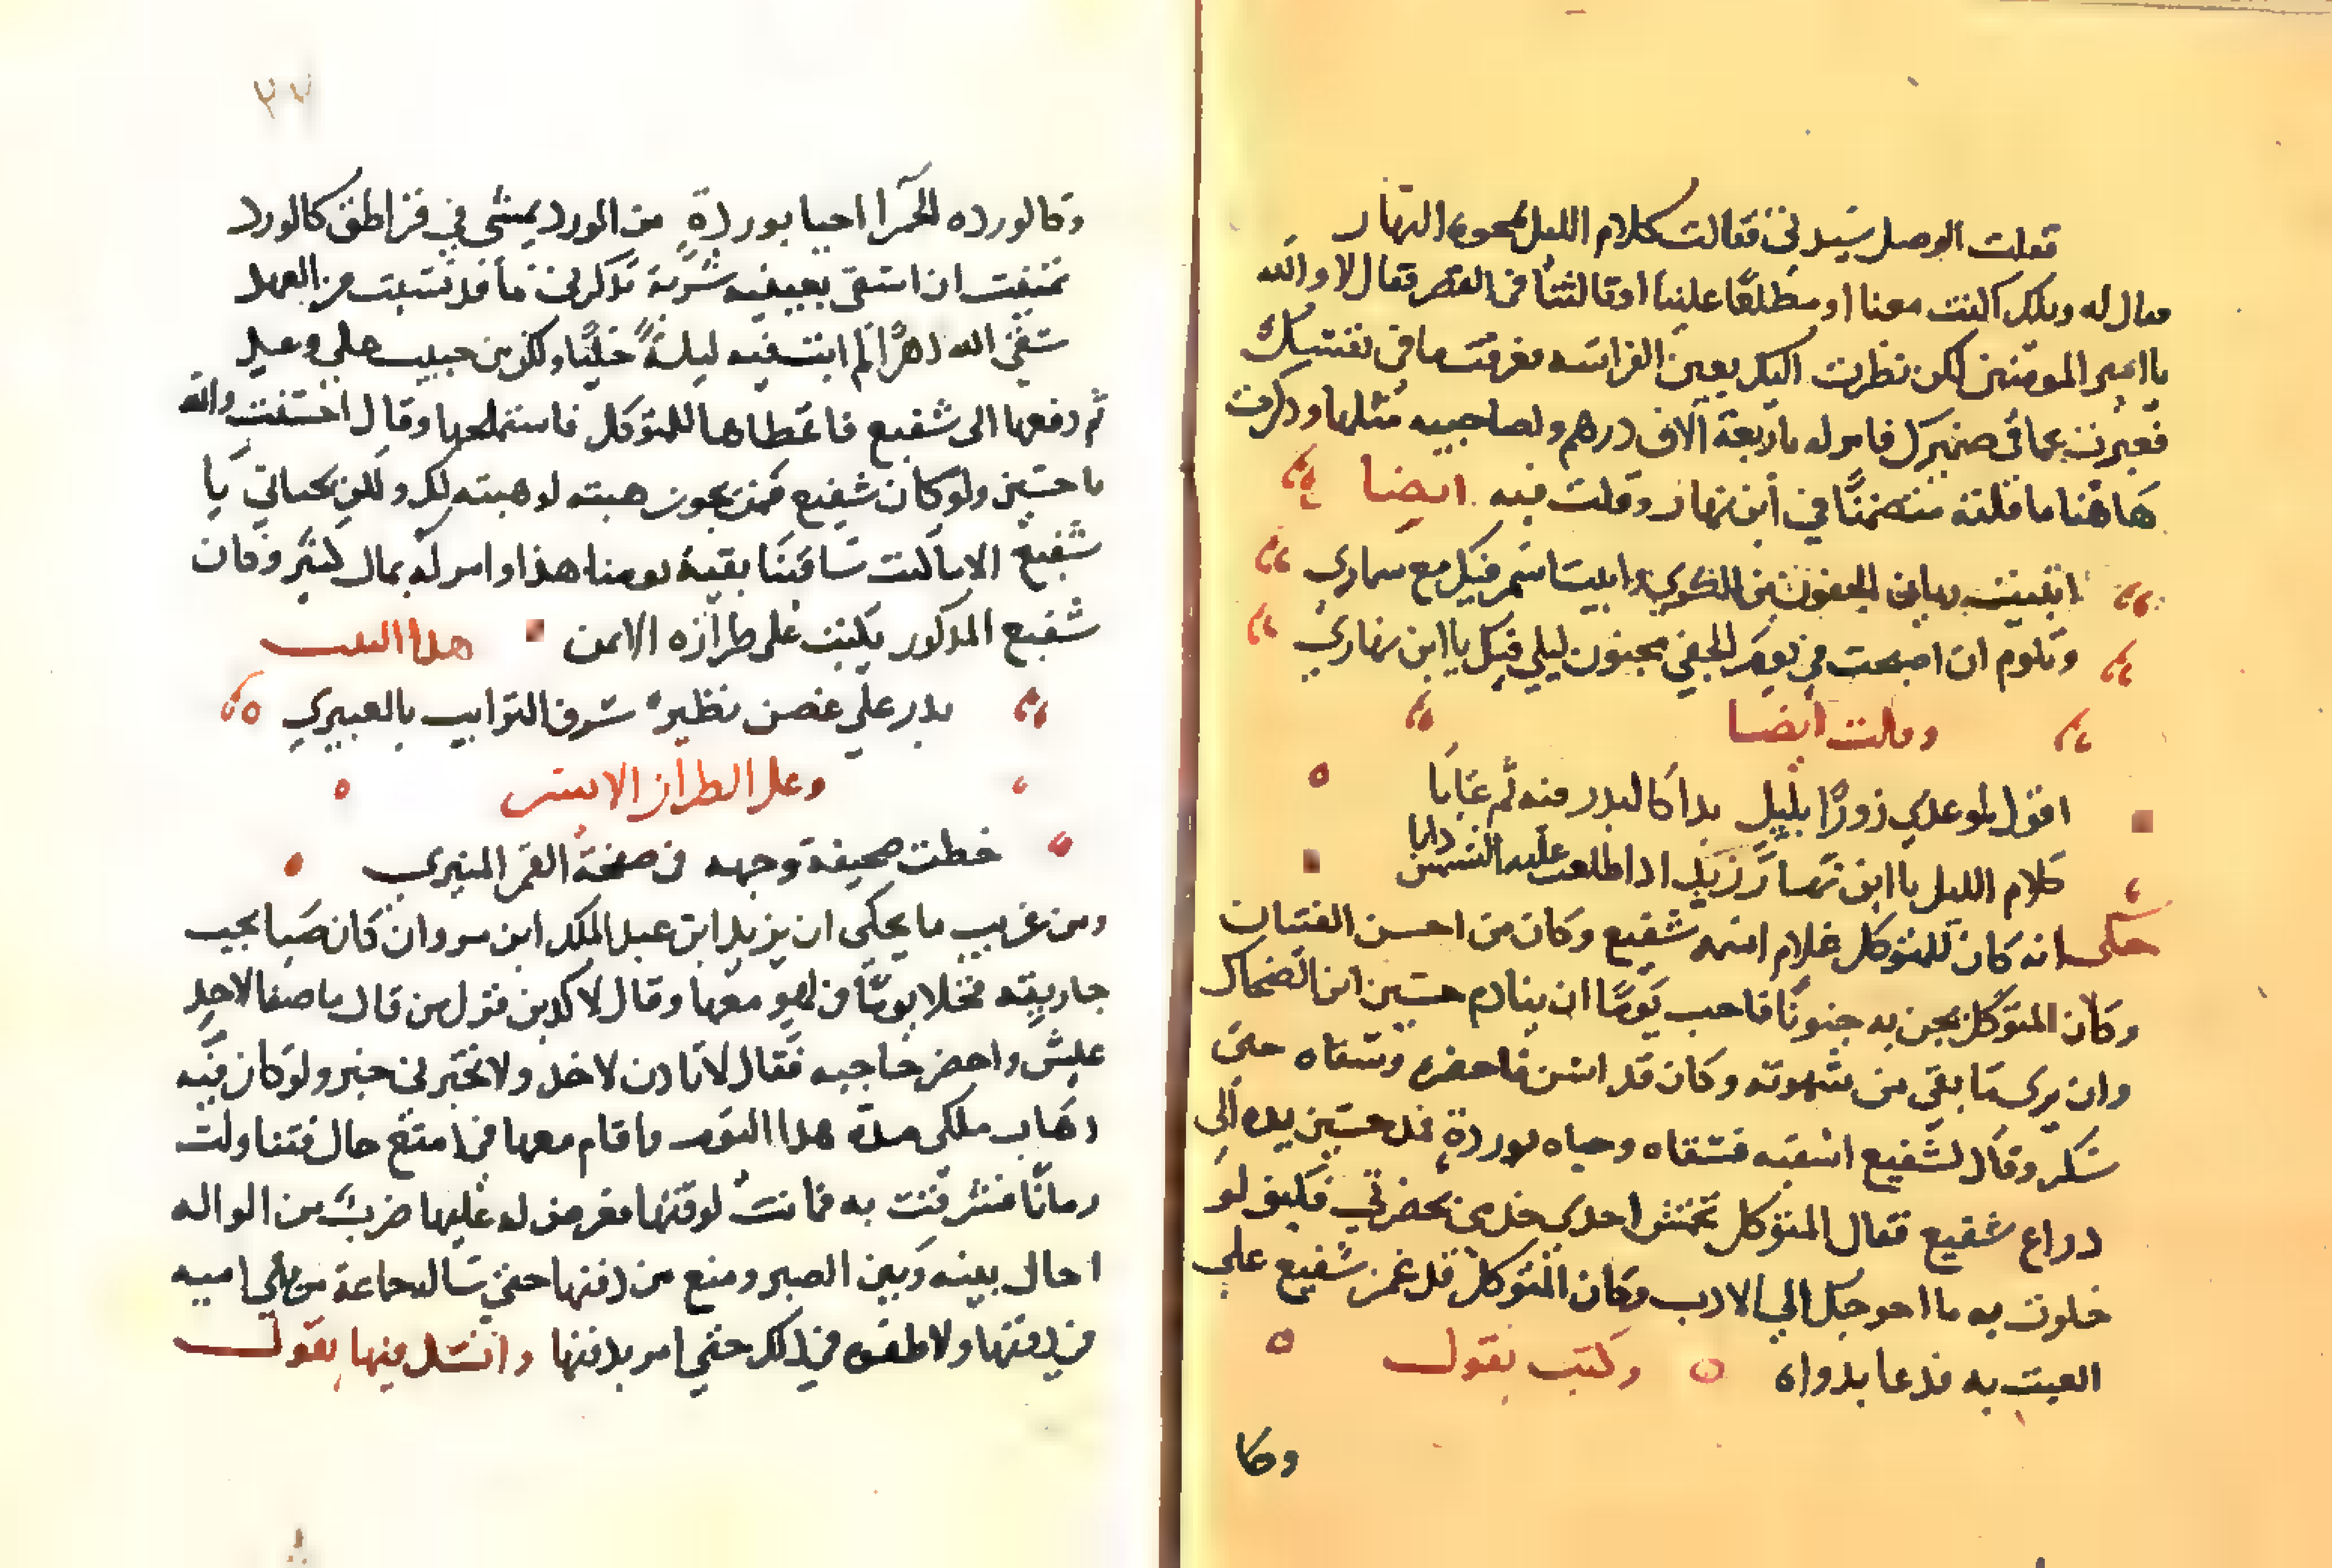 فقلت الوصل سيدتي فقالت كلام الليل يمحوه النهار
فقال له ويلك اكنت معنا او مطلعا علينا او ثالثنا في القصر فقال لا والله
يا امير المومنين لكن نظرت اليك بعين الفراسه فعرفت ما في نفسك
فعبرت عما في ضميرك فامر له باربعة آلاف درهم ولصاحبيه مثلها وذكرت
هاهنا ما قلته متضمنا في ابن نهار وقلت فيه ايضا
افنيت يا من الجفون من الكري وابيت اسمر فيك مع سماري
وتلوم ان اصبحت في يوم الجفي مجنون ليلي فيك يا ابن نهاري
وقلت ايضا
اقول لموعدي زورا بليل بدا كالبدر منه ثم غابا
كلام الليل يا ابن نهار زيد اذا طلعت عليه الشمس ذابا
حكى انه كان للمتوكل غلام اسمه شفيع وكان من احسن الفتيان
وكان المتوكل يجن به جنونا فاحب يوما ان ينادم حسين ابن الضحاك
وان يرى ما بقي من شهوته وكان قد اسن فاحضره وسقاه حتى
سكر وقال لشفيع اسقيه فسقاه وحياه بوردة فمد حسين يده الي
دراع شفيع فقال المتوكل تخمش احدى خدمى بحضرتي فكيف لو
خلوت به ما احوجك الي الادب وكان المتوكل قد غمز شفيع علي
العبت به فدعا بدواه وكتب يقول
وكا
٢٧
وكالورده الحمرا احيا بوردة من الورد يمشي في قراطق كالورد
تمنيت ان استقى بعينيه شربة تذكرني ما قد نسيت من العهد
سقى الله دهرا لم ابت فيه ليلة خليا ولكن من حبيب على وعد
ثم دفعها الى شفيع فاعطاها للمتوكل فاستملحها وقال احسنت والله
يا حسين ولو كان شفيع ممن يجوز هبته لوهبته لك ولكن بحياتي يا
شفيع الا ما كنت ساقينا بقية يومنا هذا وامر له بمال كثير وكان
شفيع المذكور يكتب على طرازه الايمن هذا البيت
بدر علي غصن نظير شرف الترايب بالعبيري
وعلى الطراز الايسر
خطت صحيفة وجهه في صفحة القمر المنيري
ومن غريب ما يحكى ان يزيد ابن عبد الملك ابن مروان كان صبا بحب
جاريته فخلا يوما في لهو معها وقال لاكذبن قول من قال ما صفا لاحد
عيش واحضر حاجبه فقال لا تاذن لاحد ولا تخبرني خبر ولو كان فيه
دهاب ملكى مدة هذا اليوم واقام معها في امتع حال فتناولت
رمانا فشرقت به فماتت لوقتها فعرض له عليها ضرب من الواله
احال بينه وبين الصبر ومنع من دفنها حتي ساله جماعة من بني اميه
في دفنها ولاطفوه في ذلك حتي امر بدفنها وانشد فيها يقول